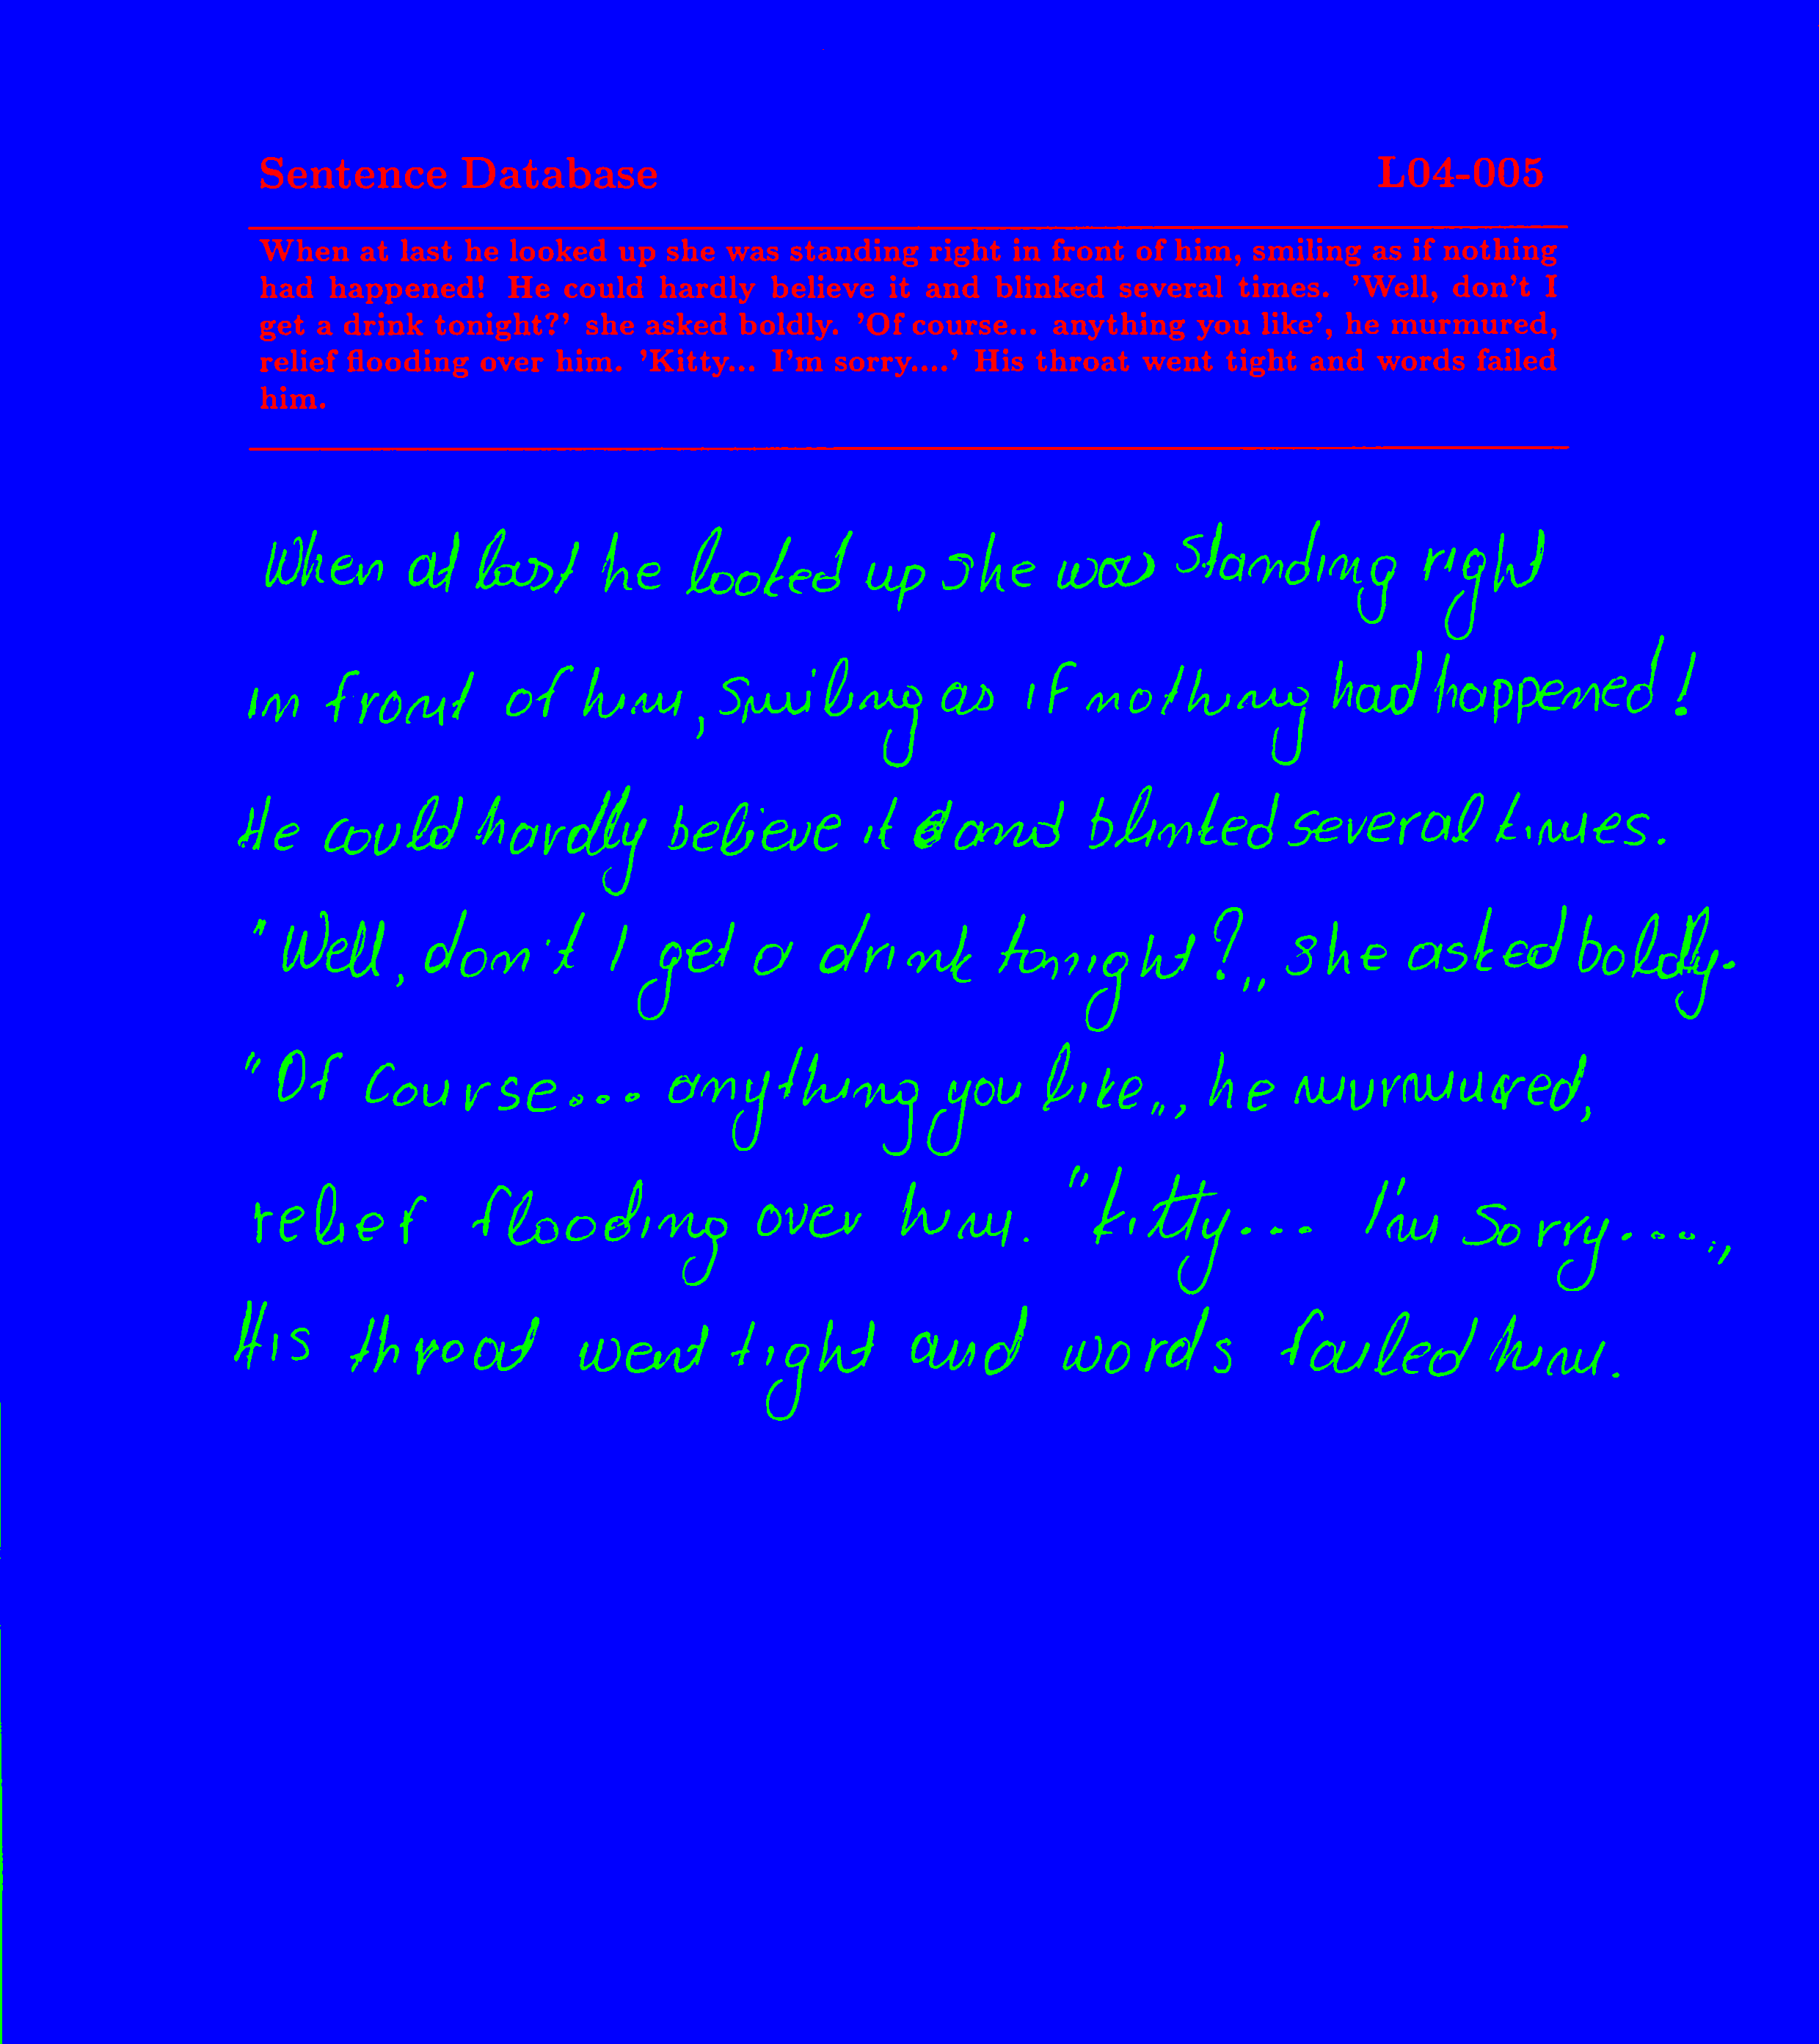 Sentence Database L04-005
When at last he looked up she was standing right in front of him, smiling as if nothing
had happened! He could hardly believe it and blinked several times. 'Well, don't I
get a drink tonight?' she asked boldly. 'Of course... anything you like', he murmured,
relief flooding over him. 'Kitty... I'm sorry....' His throat went tight and words failed
him.
When at last he looked up she was standing right
in front of him, smiling as if nothing had happened!
He could hardly believe it and blinked several times.
"Well, don't I get a drink tonight?„ she asked boldly.
"Of course... anything you like„, he murmured,
relief flooding over him. "Kitty... I'm sorry....„
His throat went tight and words failed him.